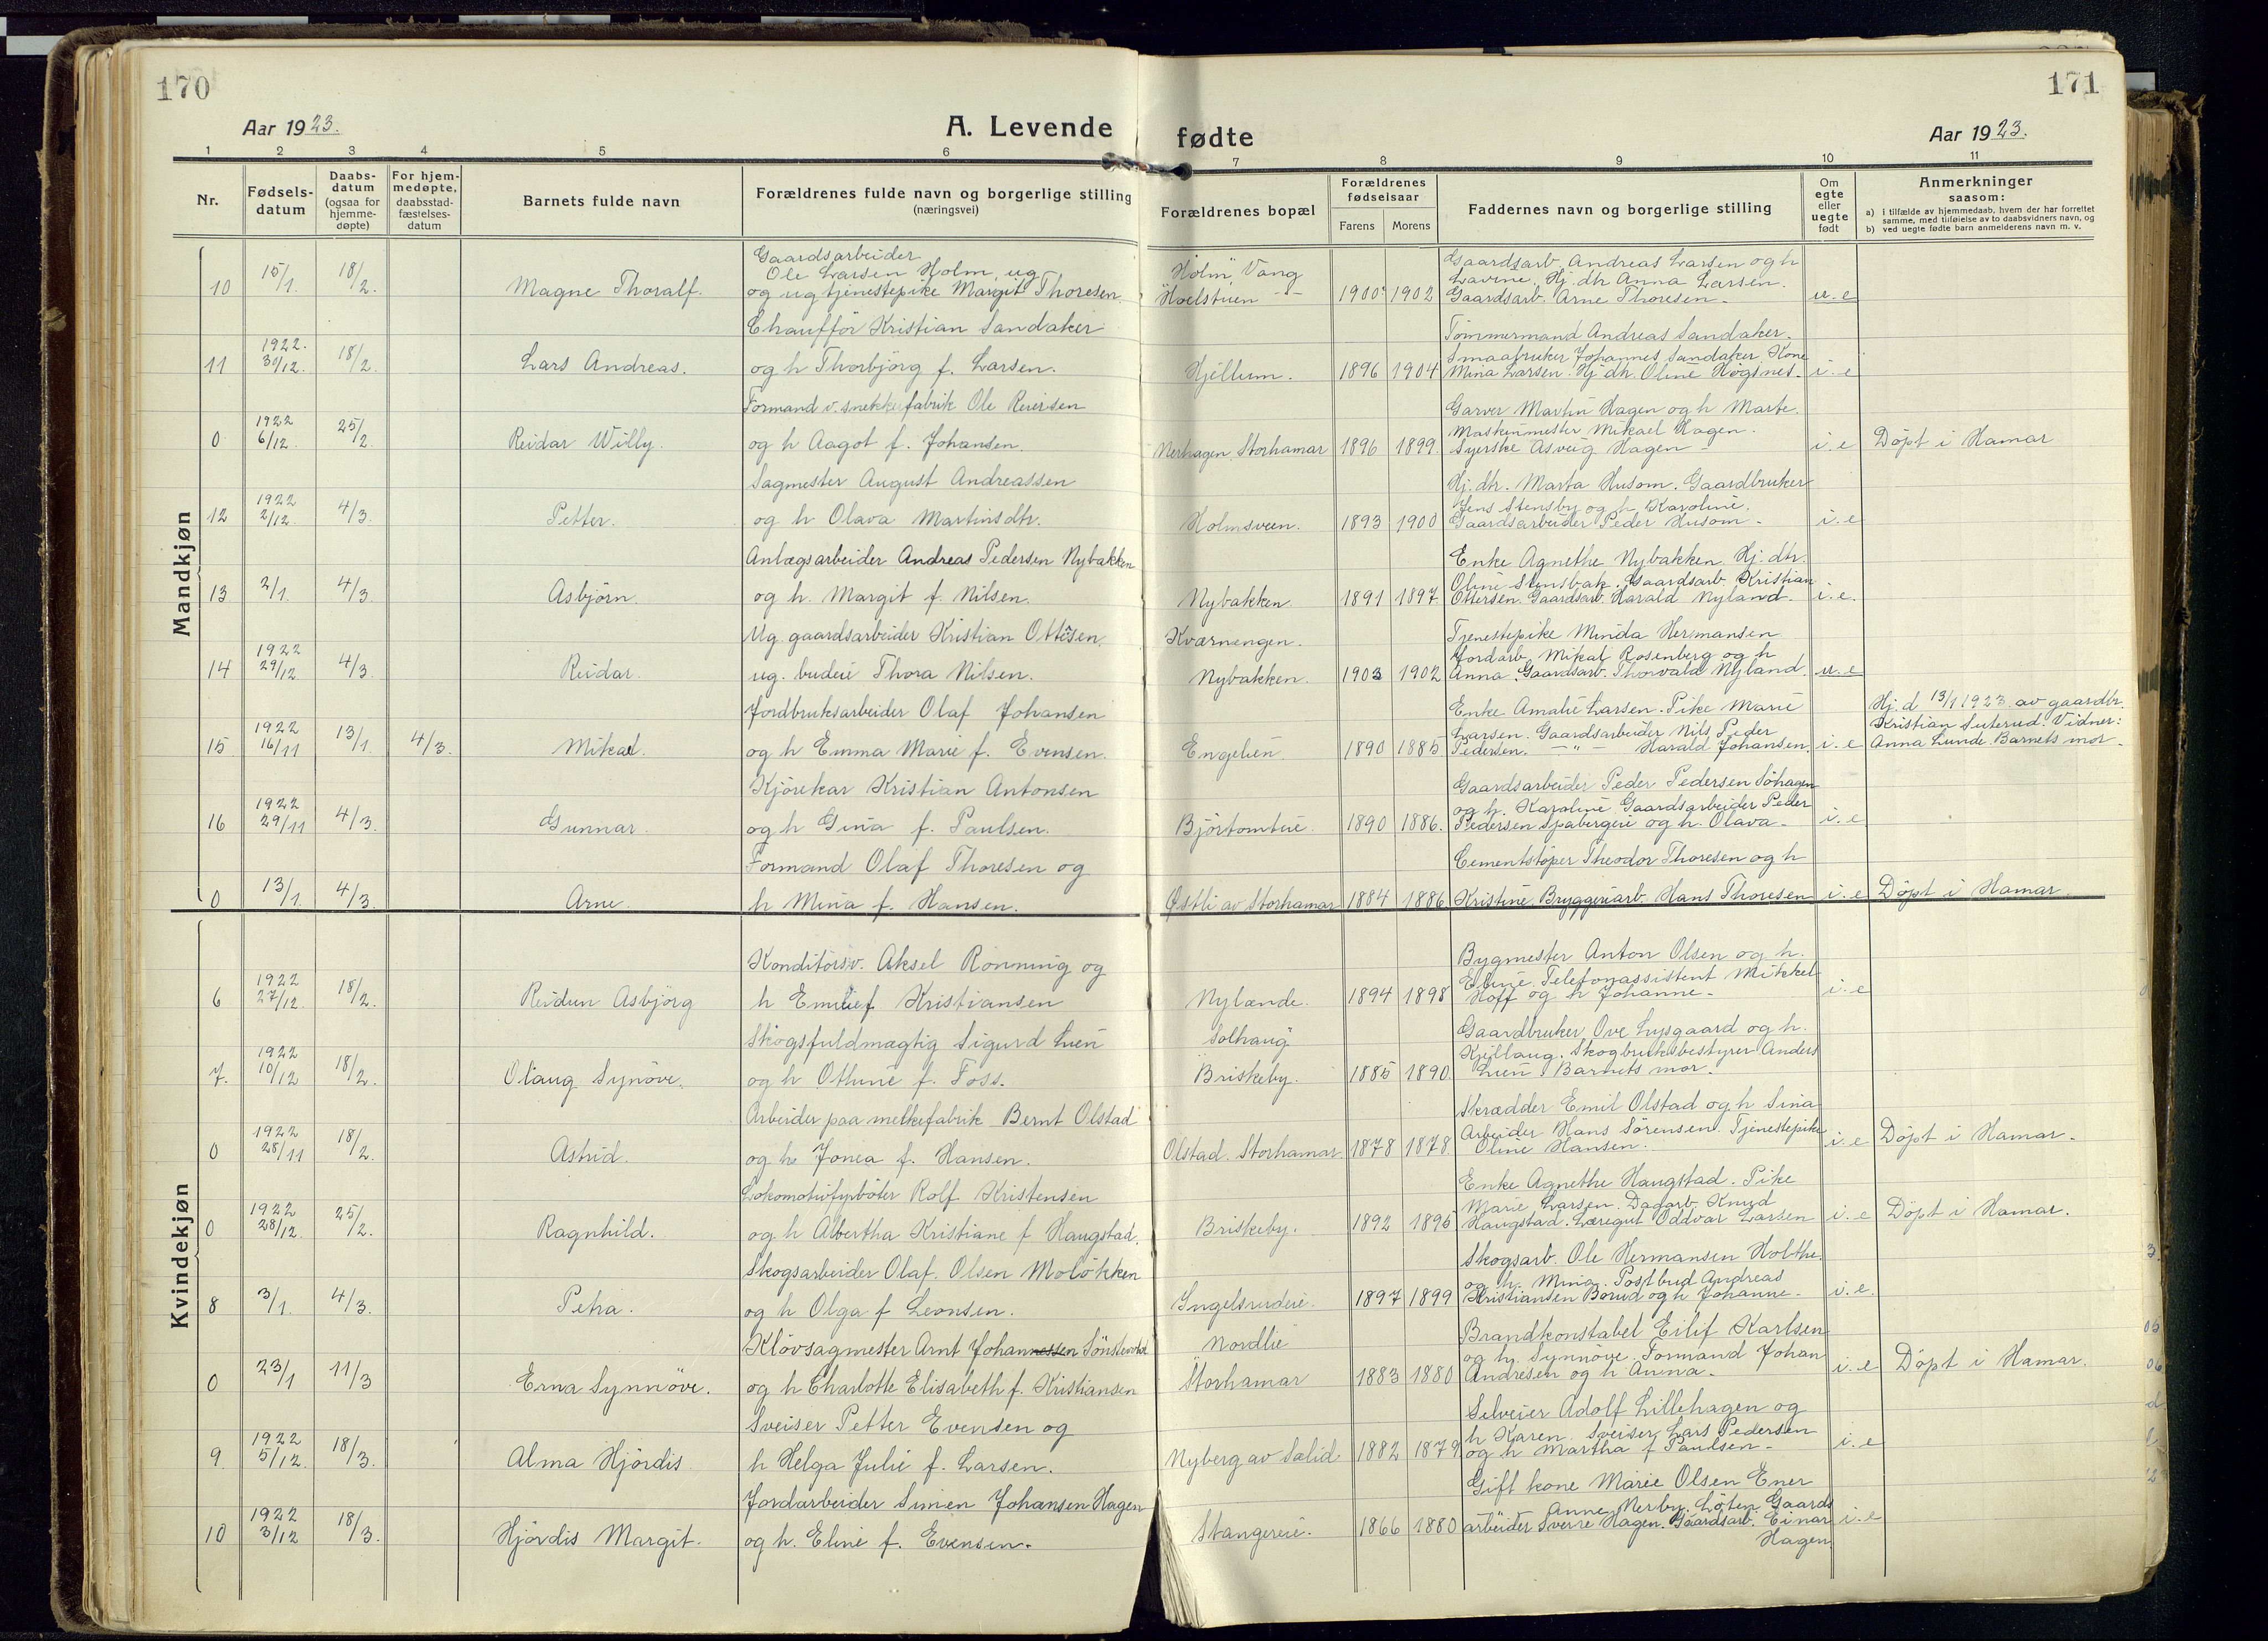 170
171
Aar 1923.
A. Levende
fødte
Aar 1923.
1 2 3 4 5 6 7 8 9 10 11
Nr.
Fødselsdatum
Daabsdatum (ogsaa for hjemmedøpte)
For hjemmedøpte, daabsstadfæstelsesdatum
Barnets fulde navn
Forældrenes fulde navn og borgerlige stilling (næringsvei)
Forældrenes bopæl
Forældrenes fødselsaar
Farens Morens
Faddernes navn og borgerlige stilling
Om egte eller uegte født
Anmerkninger saasom:
a) i tilfælde av hjemmedaab, hvem der har forrettet samme, med tilføielse av to daabsvidners navn, og
b) ved uegte fødte barn anmelderens navn m. v.
Mandkjøn
Gaardsarbeider
Ole Larsen Holm, ug
10 15/1. 18/2. Magne Thoralf. og ug tjenestepike Margit Thoresen.
Holm, Vang
Hoelstuen 1900 1902
Gaardsarb. Andreas Larsen og h
Lavine. Hj. dtr Anna Larsen.
Gaardsarb. Arne Thoresen. u. e
Chauffør Kristian Sandaker
11 1922. 30/12. 18/2. Lars Andreas. og h Thorbjörg f. Larsen.
Hjellum. 1896 1904
Tømmermand Andreas Sandaker.
Smaabruker Johannes Sandaker, Kone
Mina Larsen. Hj. dtr. Oline Högsnes. i. e
Formand v. snekkerfabrik Ole Reiersen
0 1922 6/12. 25/2. Reidar Willy. og h Aagot f. Johansen.
Nerhagen, Storhamar 1896 1899
Garver Martin Hagen og h Marte.
Maskinmester Mikael Hagen.
Syerske Asveig Hagen i. e Döpt i Hamar
Sagmester August Andreassen
12 1922 2/12. 4/3. Petter. og h Olava Martinsdtr.
Holmsveen. 1893 1900
Hj. dtr. Marta Husom. Gaardbruker
Jens Stensby og h Karoline.
Gaardsarbeider Peder Husom. i. e
Anlægsarbeider Andreas Pedersen Nybakken
13 2/1. 4/3. Asbjörn. og h. Margit f. Nilsen.
Nybakken. 1891 1897
Enke Agnethe Nybakken. Hj. dtr.
Oline Stensbak. Gaardsarb. Kristian
Ottersen. Gaardsarb. Harald Nyland. i. e.
Ug. gaardsarbeider Kristian Ottesen.
14 1922 29/12. 4/3. Reidar. ug. budeie Thora Nilsen.
Kværnengen.
Nybakken. 1903 1902
Tjenestepike Minda Hermansen
Jordarb. Mikal Rosenberg og h
Anna. Gaardsarb. Thorvald Nyland. u. e
Jordbruksarbeider Olaf Johansen
15 1922 16/11 13/1. 4/3. Mikal. og h Emma Marie f. Evensen.
Engelien 1890 1885
Enke Amalie Larsen. Pike Marie
Larsen. Gaardsarbeider Nils Peder
Pedersen. — " — Harald Johansen. i. e
Hj. d 13/1 1923. av gaardbr.
Kristian Suterud. Vidner:
Anna Lunde. Barnets mor.
Kjörekar Kristian Antonsen
16 1922 29/11 4/3. Gunnar. og h Gina f. Paulsen.
Björtomteie. 1890 1886.
Gaardsarbeider Peder Pedersen Söhagen
og h. Karoline. Gaardsarbeider Peder
Pedersen Spabergeie og h. Olava. i. e
Formand Olaf Thoresen og
0 13/1. 4/3. Arne. h Mina f. Hansen.
Østli av Storhamar 1884 1886
Cementstöper Theodor Thoresen og h
Kristine. Bryggeriarb. Hans Thoresen i. e Döpt i Hamar.
Kvindekjøn
Konditorsv. Aksel Rönning og
6 1922 27/12. 18/2. Reidun Asbjörg h Emilie f Kristiansen
Nylænde. 1894 1898
Bygmester Anton Olsen og h.
Eline. Telefonassistent Mikkel
Hoff og h Johanne. i. e
Skogsfuldmægtig Sigurd Lien
7. 1922 10/12 18/2. Olaug Synöve. og h Othine f. Foss.
Solhaug
Briskeby. 1885 1890
Gaardbruker Ove Lysgaard og h.
Kjellaug. Skogbruksbestyrer Anders
Lien. Barnets mor.
Arbeider paa melkefabrik Bernt Olstad
0 1922 28/11 18/2. Astrid. og h Jonea f. Hansen.
Olstad. Storhamar 1878 1878
Skrædder Emil Olstad og h Sina
Arbeider Hans Sörensen. Tjenestepike
Oline Hansen. i. e Döpt i Hamar.
Lokomotivfyrböter Rolf Kristensen
0 1922 28/12. 25/2. Ragnhild. og h Albertha Kristiane f Haugstad.
Briskeby. 1892 1895
Enke Agnethe Haugstad. Pike
Marie Larsen. Dagarb. Knud
Haugstad. Læregut Oddvar Larsen i. e Döpt i Hamar.
Skogsarbeider Olaf Olsen Molökken
8 3/1. 4/3. Petra. og h Olga f Leonsen.
Ingelsrudeie. 1897 1899
Skogsarb. Ole Hermansen Holthe
og h. Mina. Postbud Andreas
Kristiansen Borud og h Johanne. i. e.
Klövsagmester Arnt Johannessen Sönstevold
0 23/1 11/3 Erna Synnöve. og h Charlotte Elisabeth f. Kristiansen
Nordlie
Storhamar 1883 1880
Brandkonstabel Eilif Karlsen
og h. Synnöve. Formand Johan
Andresen og h Anna. i. e Döpt i Hamar.
Sveiser Petter Evensen og
9. 1922 5/12. 18/3. Alma Hjördis h Helga Julie f. Larsen.
Nyberg av Sælid 1882 1879
Selveier Adolf Lillehagen og
h Karen. Sveiser Lars Pedersen
og h Martha f Paulsen. i. e
Jordarbeider Simen Johansen Hagen
10 1922 3/12 18/3. Hjördis Margit. og h. Eline f. Evensen.
Stangereie. 1866 1880
Gift kone Marie Olsen Ener
Anne Nerby. Löten Gaards
arbeider Sverre Hagen. Gaardsarb. Einar i. e
Hagen.